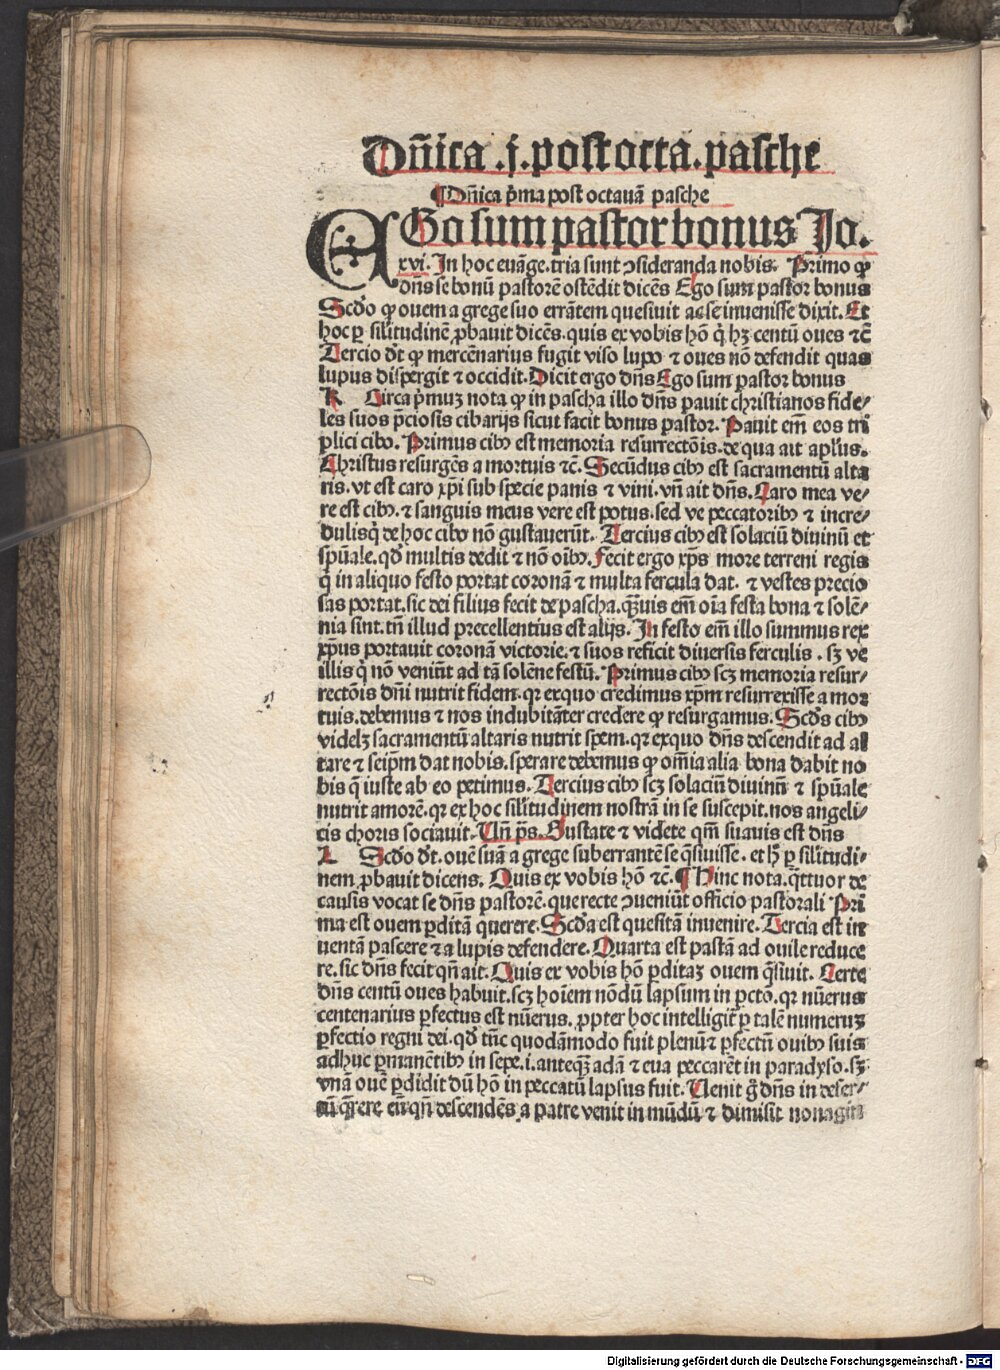 Dñica .j. post octa. pasche
¶Dñica p̃ma post octauã pasche
EGo sum pastor bonus Jo.
xvi. In hoc euãge. tria sunt ꝯsideranda nobis. Primo ꝙ
dñs se bonũ pastorẽ ostẽdit dicẽs Ego sum pastor bonus
Scd̃o ꝙ ouem a grege suo errãtem quesiuit ac se inuenisse dixit. Et
hoc ꝑ silitudinẽ ꝓbauit dicẽs. quis ex vobis hõ q̃ hꝫ centũ oues ⁊c̃
Tercio d̃t ꝙ mercẽnarius fugit viso lupo ⁊ oues nõ defendit quas
lupus dispergit ⁊ occidit. Dicit ergo dñs Ego sum pastor bonus
K Circa p̃muꝫ nota ꝙ in pascha illo dñs pauit christianos fide/
les suos p̃ciosis cibarijs sicut facit bonus pastor. Pauit em̃ eos tri
plici cibo. Primus cibꝰ est memoria resurrectõis. de qua ait apl̃us.
Christus resurgẽs a mortuis ⁊c. Secũdus cibꝰ est sacramentũ alta
ris. vt est caro xp̃i sub specie panis ⁊ vini. vñ ait dñs. Caro mea ve/
re est cibꝰ. ⁊ sanguis meus vere est potus. sed ve peccatoribꝰ ⁊ incre/
dulis q̃ de hoc cibo nõ gustauerũt. Tercius cibꝰ est solaciũ diuinũ et
spũale. qd̃ multis dedit ⁊ nõ oĩbꝰ. Fecit ergo xp̃s more terreni regis
q̃ in aliquo festo portat coronã ⁊ multa fercula dat. ⁊ vestes precio
sas portat. sic dei filius fecit de pascha. q̃uis em̃ oĩa festa bona ⁊ solẽ/
nia sint. tñ illud precellentius est alijs. In festo em̃ illo summus rex
xp̃us portauit coronã victorie. ⁊ suos reficit diuersis ferculis . sꝫ ve
illis q̃ nõ veniũt ad tã solẽne festũ. Primus cibꝰ scꝫ memoria resur/
rectõis dñi nutrit fidem. qꝛ exquo credimus xp̃m resurrexisse a mor
tuis. debemus ⁊ nos indubitãter credere ꝙ resurgamus. Scd̃s cibꝰ
videlꝫ sacramentũ altaris nutrit spem. qꝛ exquo dñs descendit ad al
tare ⁊ seipm̃ dat nobis. sperare debemus ꝙ om̃ia alia bona dabit no
bis q̃ iuste ab eo petimus. Tercius cibꝰ scꝫ solaciũ diuinũ ⁊ spũale
nutrit amorẽ. qꝛ ex hoc silitudinem nostrã in se suscepit. nos angeli/
cis choris sociauit. Vñ p̃s. Gustate ⁊ videte qm̃ suauis est dñs
L Scd̃o d̃t. ouẽ suã a grege suberrantẽ se q̃siuisse. et h̃ ꝑ silitudi/
nem ꝓbauit dicens. Quis ex vobis hõ ⁊c. ¶Hinc nota. q̃ttuor de
causis vocat se dñs pastorẽ. que recte ꝯueniũt officio pastorali Pri
ma est ouem ꝑditã querere. Scd̃a est quesitã inuenire. Tercia est in
uentã pascere ⁊ a lupis defendere. Quarta est pastã ad ouile reduce
re. sic dñs fecit qñ ait. Quis ex vobis hõ ꝑditaꝫ ouem q̃siuit. Certe
dñs centũ oues habuit. scꝫ hoĩem nõdũ lapsum in pctõ. qꝛ nũerus
centenarius ꝑfectus est nũerus. ꝓpter hoc intelligit̃ ꝑ talẽ numeruꝫ
ꝑfectio regni dei. qd̃ tũc quodãmodo fuit plenũ ⁊ ꝑfectũ ouibꝰ suis
adhuc ꝑmanẽtibꝰ in sepe. i. anteq̃ꝫ adã ⁊ eua peccarẽt in paradyso. sꝫ
vnã ouẽ ꝑdidit dũ hõ in peccatũ lapsus fuit. Uenit g̃ dñs in deser/
tũ q̃rere eũ qñ descendẽs a patre venit in mũdũ ⁊ dimisit nonagin